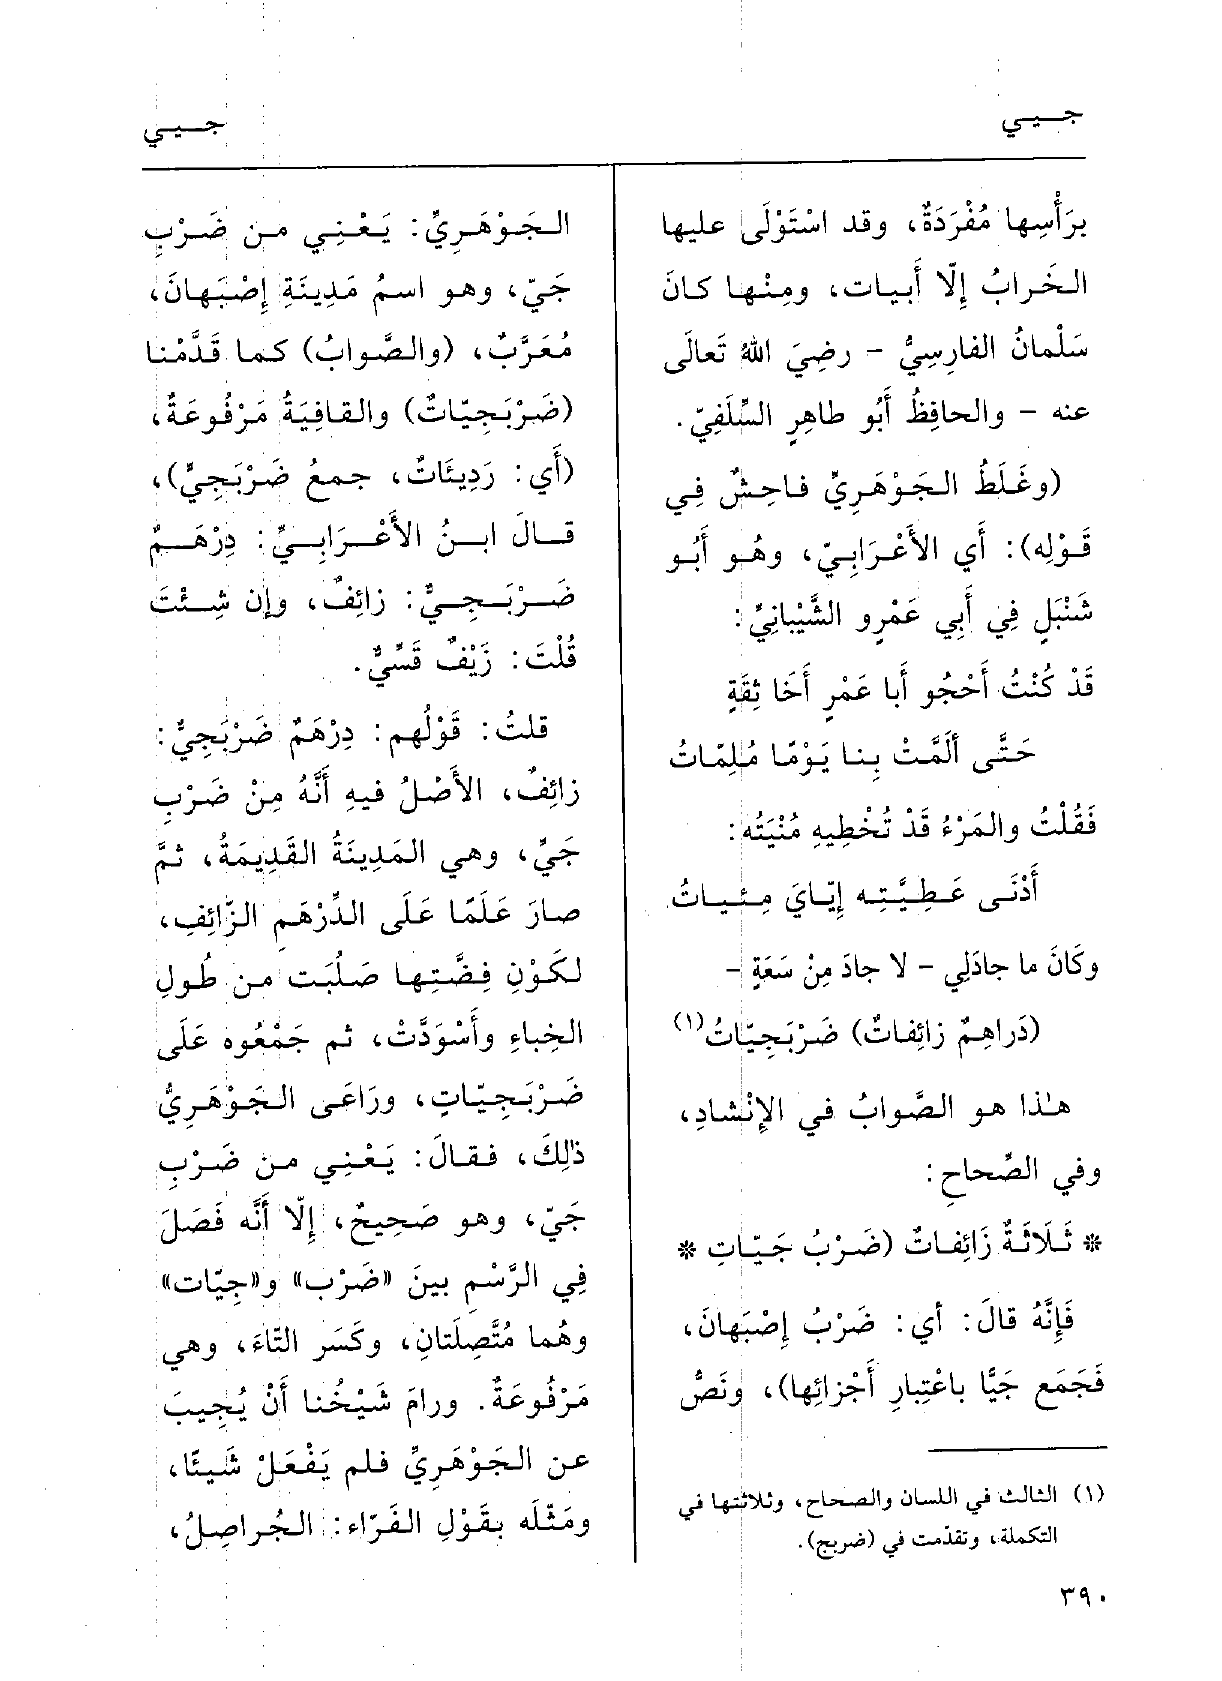 جـيـي
جـيـي
بِرَأْسِها مُفْرَدَةٌ، وقد اسْتَوْلَى عليها
الخَرابُ إلّا أَبيات، ومِنْها كانَ
سَلْمانُ الفارِسِيُّ - رضِيَ اللهُ تَعالَى
عنه - والحافِظُ أَبُو طاهِرٍ السِّلَفِيّ.
(وغَلَطُ الجَوْهَرِيِّ فاحِشٌ فِي
قَوْلِه): أَي الأَعْرَابِيّ، وهُو أَبُو
شَنْبَلٍ فِي أَبِي عَمْرٍو الشَّيْبانِيِّ:
قَدْ كُنْتُ أَحْجُو أَبا عَمْرٍ أَخَا ثِقَةٍ
حَتَّى أَلَمَّتْ بِنا يَوْمًا مُلِمّاتُ
فَقُلْتُ والمَرْءُ قَدْ تُخْطِيهِ مُنْيَتُه:
أَدْنَى عَطِيَّتِه إِيّايَ مِئْياتُ
وكَانَ ما جادَلِي - لا جادَ مِنْ سَعَةٍ -
(دَراهِمٌ زائِفاتٌ) ضَرْبَجِيّاتُ(١)
هٰذا هو الصَّوابُ في الإِنْشادِ،
وفي الصِّحاحِ:
* ثَلَاثَةٌ زَائِفاتٌ (ضَرْبُ جَيّاتِ *
فَإِنَّهُ قالَ: أي: ضَرْبُ إِصْبَهانَ،
فَجَمَع جَيًّا باعْتِبارِ أَجْزائِها)، ونَصُّ
(١) الثالث في اللسان والصحاح، وثلاثتها في
التكملة، وتقدّمت في (ضربج).
٣٩٠
الجَوْهَرِيِّ: يَعْنِي من ضَرْبِ
جَيّ، وهو اسمُ مَدِينَةِ إِصْبَهانَ،
مُعَرَّبٌ، (والصَّوابُ) كما قَدَّمْنا
(ضَرْبَجِيّاتٌ) والقافِيَةُ مَرْفُوعَةٌ،
(أَي: رَدِيئَاتٌ، جمعُ ضَرْبَجِيٍّ)،
قالَ ابنُ الأَعْرَابِيِّ: دِرْهَمٌ
ضَرْبَجِيٌّ: زائِفٌ، وإن شِئْتَ
قُلْتَ: زَيْفٌ قَسِّيٌّ.
قلتُ: قَوْلُهم: دِرْهَمٌ ضَرْبَجِيٌّ:
زائِفٌ، الأَصْلُ فيهِ أَنَّهُ مِنْ ضَرْبِ
جَيٍّ، وهي المَدِينَةُ القَدِيمَةُ، ثمَّ
صارَ عَلَمًا عَلَى الدِّرْهَمِ الزّائِفِ،
لكَوْنِ فِضَّتِها صَلُبَت من طُولِ
الخِباءِ وأَسْوَدَّتْ، ثم جَمَعُوه عَلَى
ضَرْبَجِيّاتٍ، ورَاعَى الجَوْهَرِيُّ
ذٰلِكَ، فقالَ: يَعْنِي من ضَرْبِ
جَيّ، وهو صَحِيحٌ، إلّا أَنَّه فَصَلَ
فِي الرَّسْمِ بينَ «ضَرْب» و«جِيّات»
وهُما مُتَّصِلَتانِ، وكَسَر التّاءَ، وهي
مَرْفُوعَةٌ. ورامَ شَيْخُنا أَنْ يُجِيبَ
عن الجَوْهَرِيِّ فلم يَفْعَلْ شَيئًا،
ومَثَلَه بقَوْلِ الفَرّاء: الجُراصِلُ،